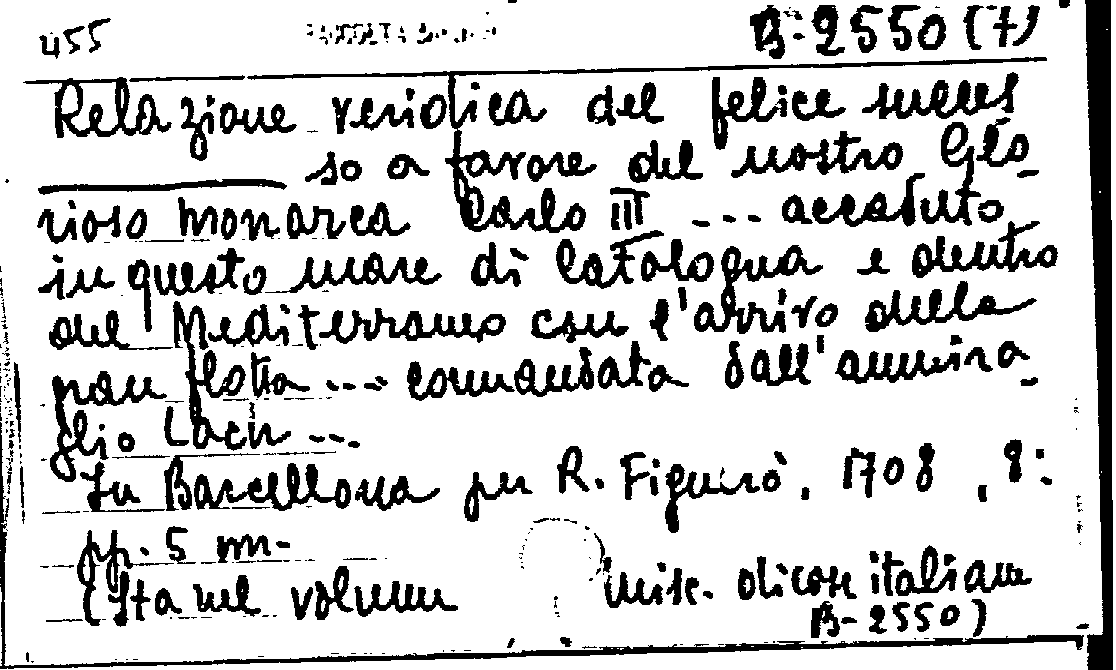 455 RACCOLTA B-2550 (7)
Relazione veridica del felice succes
so a favore del nostro Glo-
rioso monarca Carlo III --- accaduto
in questo mare di Catalogna e dentro
del Mediterraneo con l'arrivo della
gran flotta --- comandata dall'ammira-
glio Lach ---
In Barcellona per R. Figuerò, 1708, 8:
pp. 5 nn-
(Sta nel volume Misc. di cose italiane
B-2550)